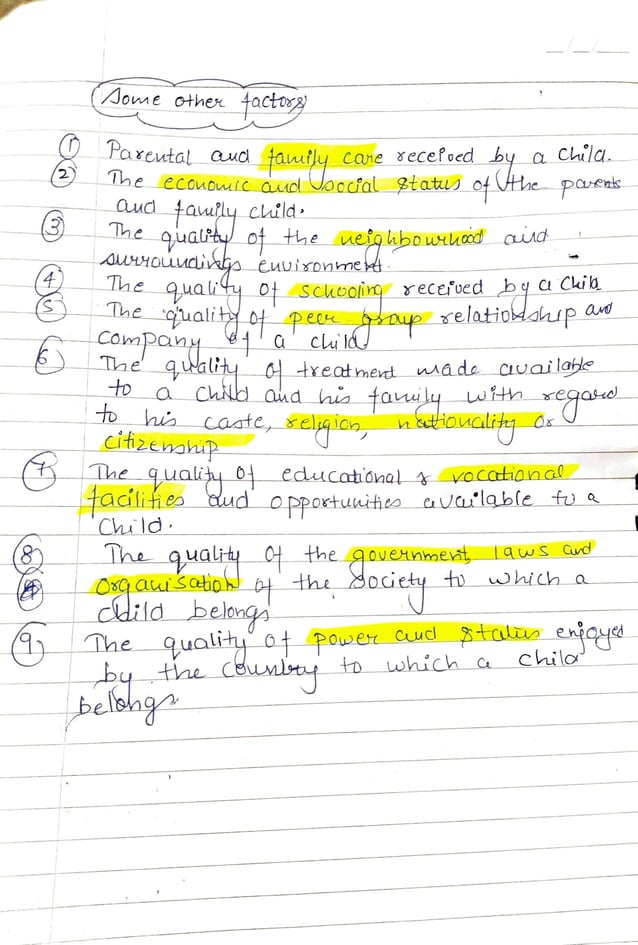 __/__/__
Some other factors
① Parental and family care received by a child.
② The economic and social status of the parents
and family child.
③ The quality of the neighbourhood and
surroundings environment.
④ The quality of schooling received by a child
⑤ The quality of peer group relationship and
company of a child
⑥ The quality of treatment made available
to a child and his family with regard
to his caste, religion, nationality or
citizenship
⑦ The quality of educational & vocational
facilities and opportunities available to a
child.
⑧ The quality of the government, laws and
organisation of the society to which a
child belongs
⑨ The quality of power and status enjoyed
by the country to which a child
belongs.